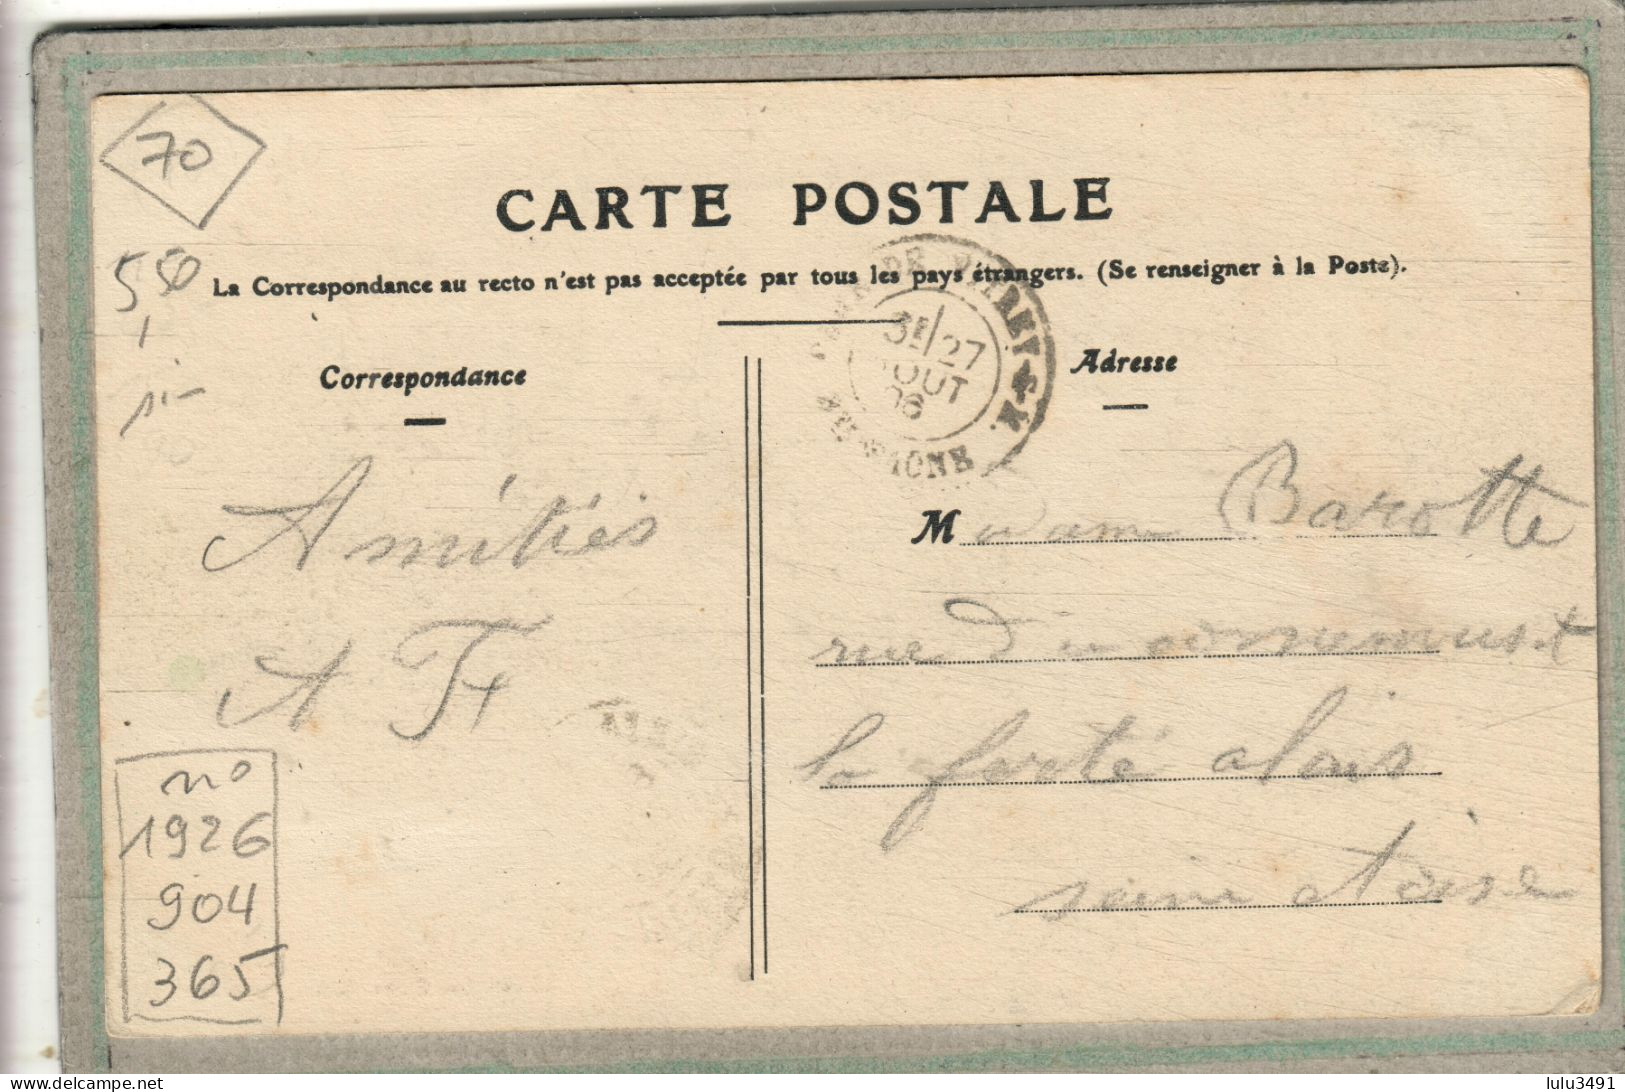 70
CARTE POSTALE
5,50
La Correspondance au recto n'est pas acceptée par tous les pays étrangers. (Se renseigner à la Poste).
Correspondance
Adresse
DE
3E/27
AOUT
06
Amitiés
A F
Madame Barotte
rue du monument
la ferté alais
seine et oise
no
1926
904
365
lulu3491